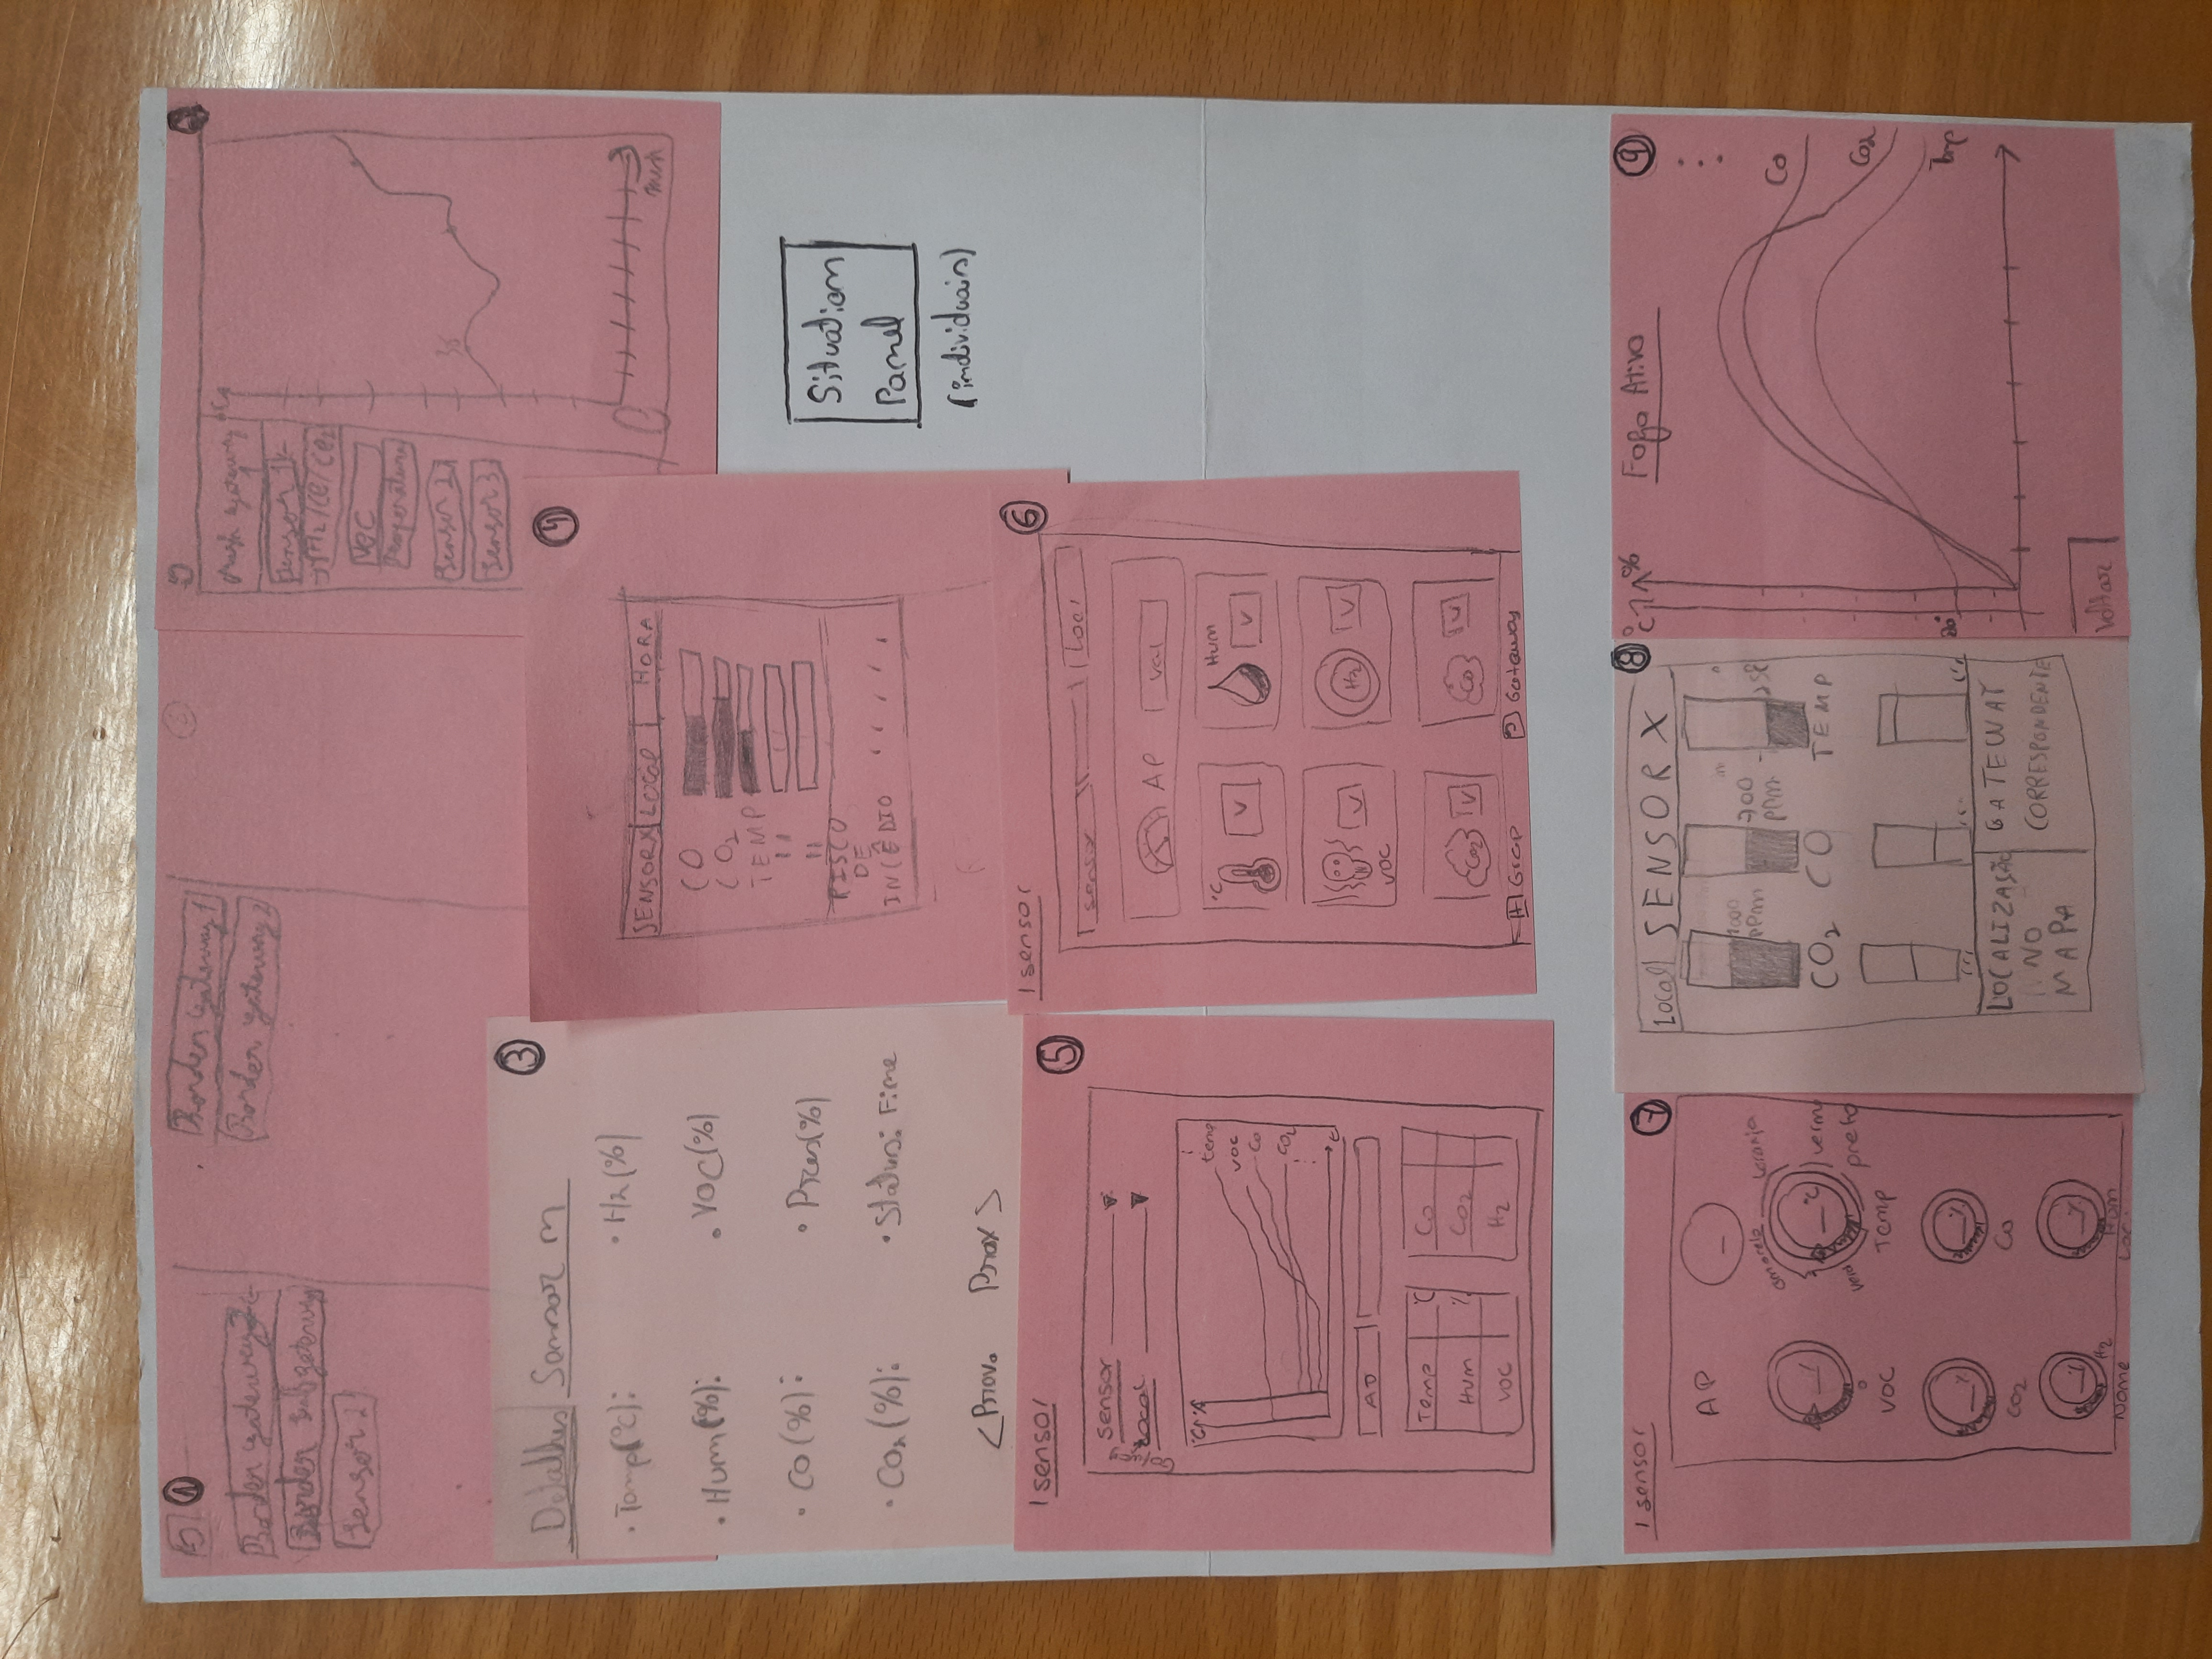 1
Border gateway 2
Border Subgateway
Sensor 1
Border gateway 1
Border gateway 2
2
°C
Mesh gateway
1
Sensor 1
H2/CO/CO2
VOC
Temperatura
Sensor 2
Sensor 3
36
min
3
Detalhes Sensor n
• Temp(°C):
• H2(%)
• Hum(%):
• VOC(%)
• CO(%):
• Pres(%)
• CO2(%):
• Status: Fine
< Prev. Prox >
4
SENSOR X LOCAL HORA
CO
CO2
TEMP
"
"
RISCO
DE
INCÊDIO
Situation
Panel
(individuais)
1 sensor
5
Sensor
Local
Gateway
°C %
temp
VOC
CO
CO2
t
Temp °C
Hum %
VOC
CO
CO2
H2
1 sensor
6
sensor
Local
AP Val
°C V
Hum V
VOC V
H2 V
CO2 V
CO V
Gateway
1 sensor
7
AP
amarelo
laranja
°C
verm
verd
preto
VOC
Temp
%
%
CO2
CO
%
%
H2
Hum
Nome
Loc.
8
Local SENSOR X
1000
PPm
700
PPm
CO2
CO
TEMP
LOCALIZAÇÃO
NO
MAPA
GATEWAY
CORRESPONDENTE
9
°C %
Fogo Ativo
CO
CO2
Temp
20°
Voltar